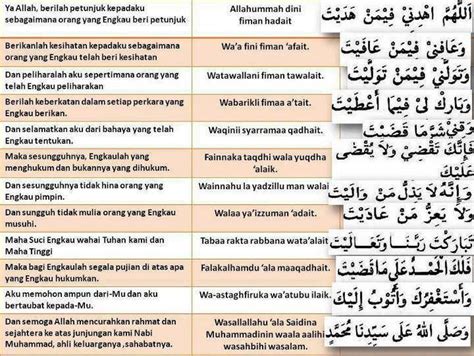 Ya Allah, berilah petunjuk kepadaku
sebagaimana orang yang Engkau beri petunjuk
Allahummah dini
fiman hadait
اَللّٰهُمَّ اهْدِنِيْ فِيْمَنْ هَدَيْتَ
Berikanlah kesihatan kepadaku sebagaimana
orang yang Engkau telah beri kesihatan
Wa'a fini fiman 'afait.
وَعَافِنِيْ فِيْمَنْ عَافَيْتَ
Dan peliharalah aku sepertimana orang yang
telah Engkau peliharakan
Watawallani fiman tawalait.
وَتَوَلَّنِيْ فِيْمَنْ تَوَلَّيْتَ
Berilah keberkatan dalam setiap perkara yang
Engkau berikan.
Wabarikli fimaa a'tait.
وَبَارِكْ لِيْ فِيْمَا أَعْطَيْتَ
Dan selamatkan aku dari bahaya yang telah
Engkau tentukan.
Waqinii syarramaa qadhait.
وَقِنِيْ شَرَّمَا قَضَيْتَ
Maka sesungguhnya, Engkaulah yang
menghukum dan bukannya yang dihukum.
Fainnaka taqdhi wala yuqdha
'alaik.
فَإِنَّكَ تَقْضِيْ وَلَا يُقْضَى
عَلَيْكَ
Dan sesungguhnya tidak hina orang yang
Engkau pimpin.
Wainnahu la yadzillu man walait
وَإِنَّهُ لَا يَذِلُّ مَنْ وَالَيْتَ
Dan sungguh tidak mulia orang yang Engkau
musuhi.
Walaa ya'izzuman 'adait.
وَلَا يَعِزُّ مَنْ عَادَيْتَ
Maha Suci Engkau wahai Tuhan kami dan
Maha Tinggi
Tabaa rakta rabbana wata'alait.
تَبَارَكْتَ رَبَّنَا وَتَعَالَيْتَ
Maka bagi Engkaulah segala pujian di atas apa
yang Engkau hukumkan.
Falakalhamdu 'ala maaqadhait.
فَلَكَ الْحَمْدُ عَلَى مَاقَضَيْتَ
Aku memohon ampun dari-Mu dan aku
bertaubat kepada-Mu.
Wa-astaghfiruka wa'atubu ilaik.
وَأَسْتَغْفِرُكَ وَأَتُوْبُ إِلَيْكَ
Dan semoga Allah mencurahkan rahmat dan
sejahtera ke atas junjungan kami Nabi
Muhammad, ahli keluarganya ,sahabatnya.
Wasallallahu 'ala Saidina
Muhammadinin waala aalihi
wasahbihi wasalam.
وَصَلَّى اللهُ عَلَى سَيِّدِنَا مُحَمَّدٍ